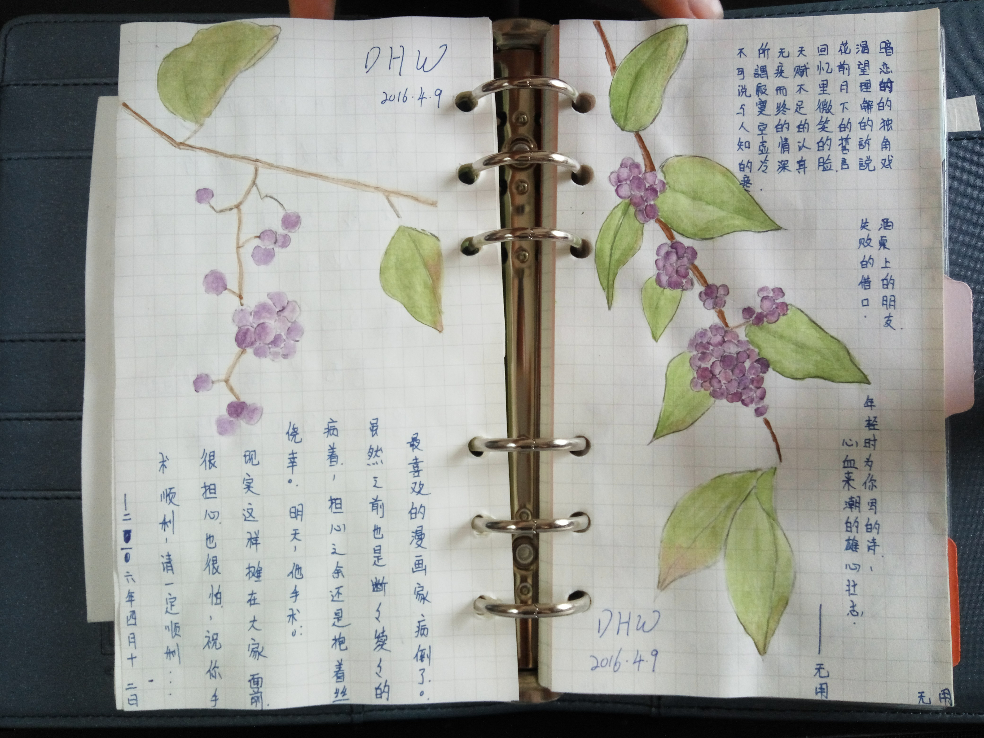 DHW
2016.4.9
最喜欢的漫画家，病倒了。
虽然之前也是断々续々的
病着，担心之余还是抱着丝
侥幸。明天，他手术。
现实这样摊在大家面前
很担心也很怕，祝你手
术顺利，请一定顺利…
一二〇一六年四月十二日
暗恋的的独角戏
渴望理解的訴説
花前月下的誓言
回忆里微笑的脸
天赋不足的认真
无疾而终的情深
所謂寂寞空虚冷
不可说与人知的
酒桌上的朋友，
失败的借口．
年轻时为你写的诗，
心血来潮的雄心壮志．
——无用
DHW
2016.4.9
无用